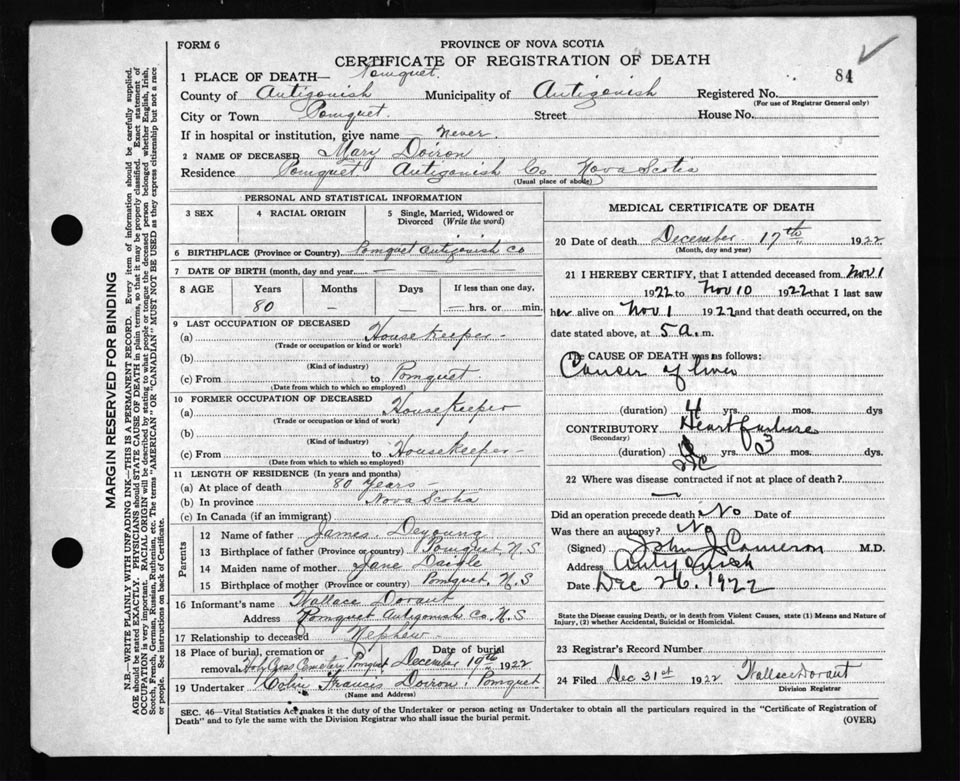 FORM 6
PROVINCE OF NOVA SCOTIA
CERTIFICATE OF REGISTRATION OF DEATH
84
1 PLACE OF DEATH— Pomquet.
County of Antigonish Municipality of Antigonish Registered No.
(For use of Registrar General only)
City or Town Pomquet. Street House No.
If in hospital or institution, give name never.
2 NAME OF DECEASED Mary Doiron
Residence Pomquet Antigonish Co Nova Scotia
(Usual place of abode)
PERSONAL AND STATISTICAL INFORMATION
3 SEX 4 RACIAL ORIGIN 5 Single, Married, Widowed or Divorced (Write the word)
6 BIRTHPLACE (Province or Country) Pomquet Antigonish Co
7 DATE OF BIRTH (month, day and year) — — —
8 AGE Years Months Days If less than one day,
80 — — — hrs. or min.
9 LAST OCCUPATION OF DECEASED
(a) Housekeeper
(Trade or occupation or kind of work)
(b)
(Kind of industry)
(c) From to Pomquet
(Date from which to which so employed)
10 FORMER OCCUPATION OF DECEASED
(a) Housekeeper
(Trade or occupation or kind of work)
(b)
(Kind of industry)
(c) From to Housekeeper
(Date from which to which so employed)
11 LENGTH OF RESIDENCE (In years and months)
(a) At place of death 80 Years
(b) In province Nova Scotia
(c) In Canada (if an immigrant)
Parents
12 Name of father James Deyoung
13 Birthplace of father (Province or country) Pomquet, N.S
14 Maiden name of mother Jane Daigle
15 Birthplace of mother (Province or country) Pomquet, N.S
16 Informant's name Wallace Dorant
Address Pomquet Antigonish Co. N.S
17 Relationship to deceased Nephew
18 Place of burial, cremation or removal Holy Cross Cemetery Pomquet Date of burial December 19th 1922
19 Undertaker Colin Francis Doiron. Pomquet
(Name and Address)
MEDICAL CERTIFICATE OF DEATH
20 Date of death December 17th 1922
(Month, day and year)
21 I HEREBY CERTIFY, that I attended deceased from Nov 1
1922 to Nov 10 1922 that I last saw
her alive on Nov 1 1922 and that death occurred, on the
date stated above, at 5 a. m.
The CAUSE OF DEATH was as follows:
Cancer of liver
(duration) 4 yrs. mos. dys
CONTRIBUTORY Heart failure
(Secondary)
(duration) yrs. 3 mos. dys
22 Where was disease contracted if not at place of death?
—
Did an operation precede death No Date of
Was there an autopsy? No
(Signed) John J Cameron M.D.
Address Antigonish
Date Dec 26. 1922
State the Disease causing Death, or in death from Violent Causes, state (1) Means and Nature of Injury, (2) whether Accidental, Suicidal or Homicidal.
23 Registrar's Record Number
24 Filed Dec 31st 1922 Wallace Dorant
Division Registrar
SEC. 46—Vital Statistics Act makes it the duty of the Undertaker or person acting as Undertaker to obtain all the particulars required in the "Certificate of Registration of
Death" and to fyle the same with the Division Registrar who shall issue the burial permit. (OVER)
MARGIN RESERVED FOR BINDING
N.B.—WRITE PLAINLY WITH UNFADING INK—THIS IS A PERMANENT RECORD. Every item of information should be carefully supplied.
AGE should be stated EXACTLY. PHYSICIANS should STATE CAUSE OF DEATH in plain terms, so that it may be properly classified. Exact statement of
OCCUPATION is very important. RACIAL ORIGIN will be described by stating to what people or tongue the deceased person belonged whether English, Irish,
Scotch, French, German, Russian, Ruthenian, etc. The terms "AMERICAN" OR "CANADIAN" MUST NOT BE USED as they express citizenship but not a race
or people. See instructions on back of Certificate.